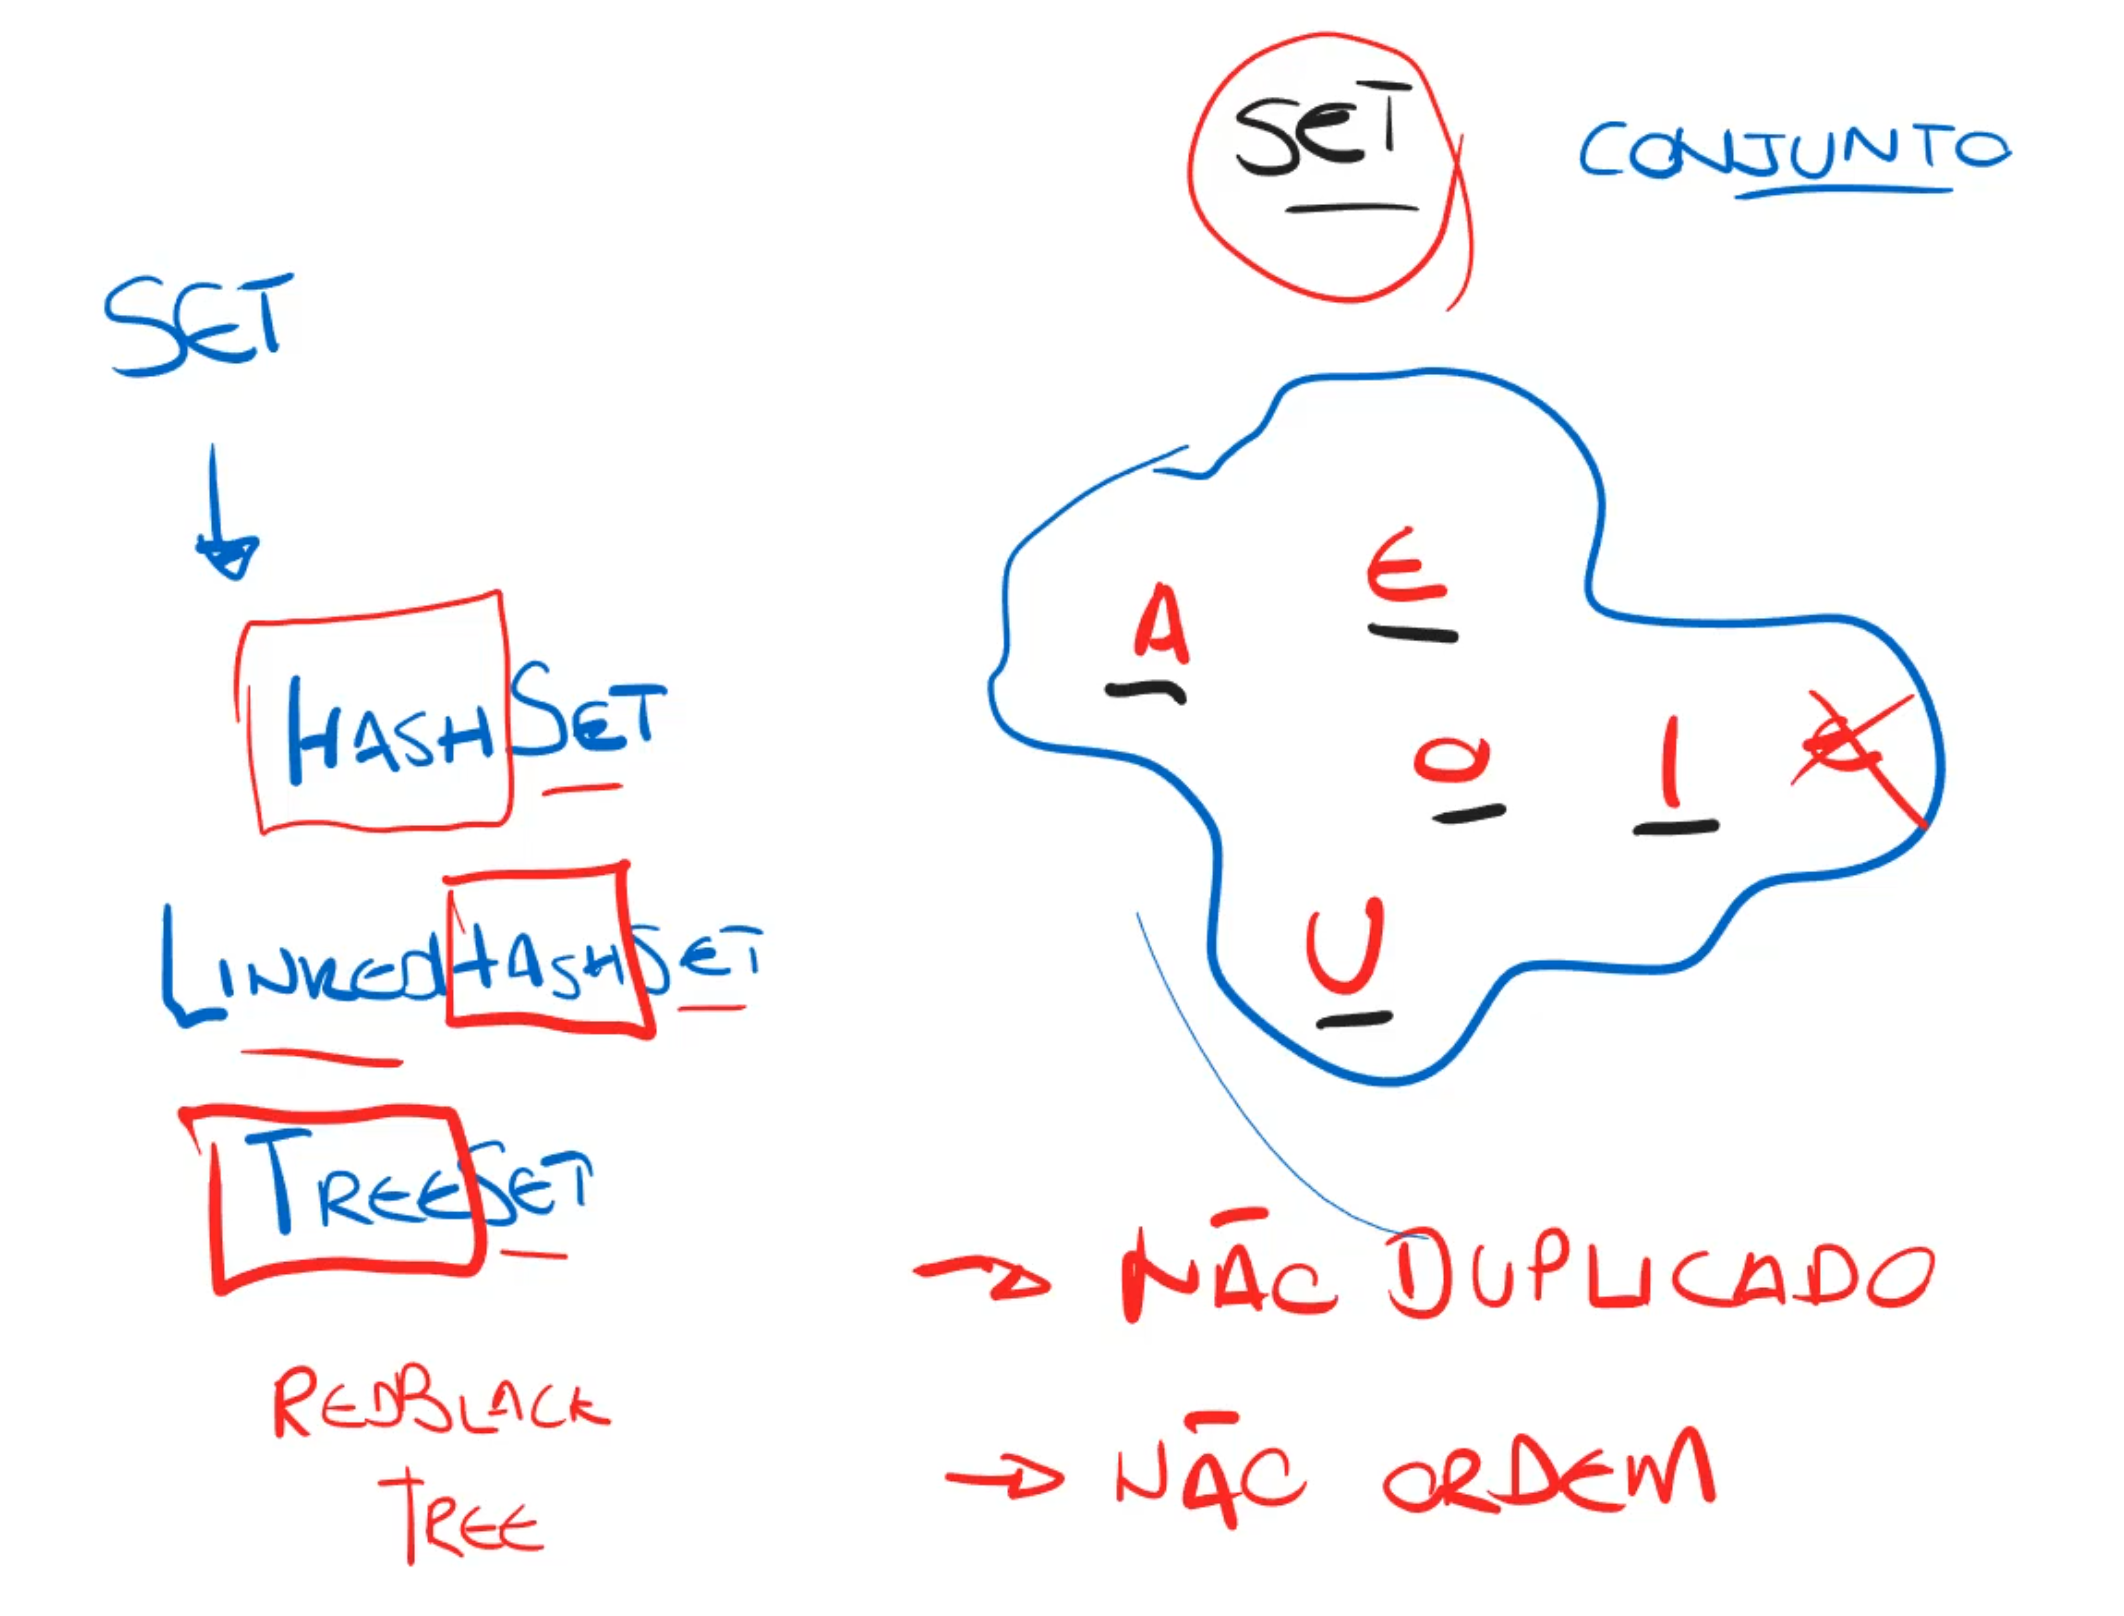 SET
CONJUNTO
SET
HASHSET
LINKEDHASHSET
TREESET
REDBLACK
TREE
A
E
O
I
U
→ NÃO DUPLICADO
→ NÃO ORDEM